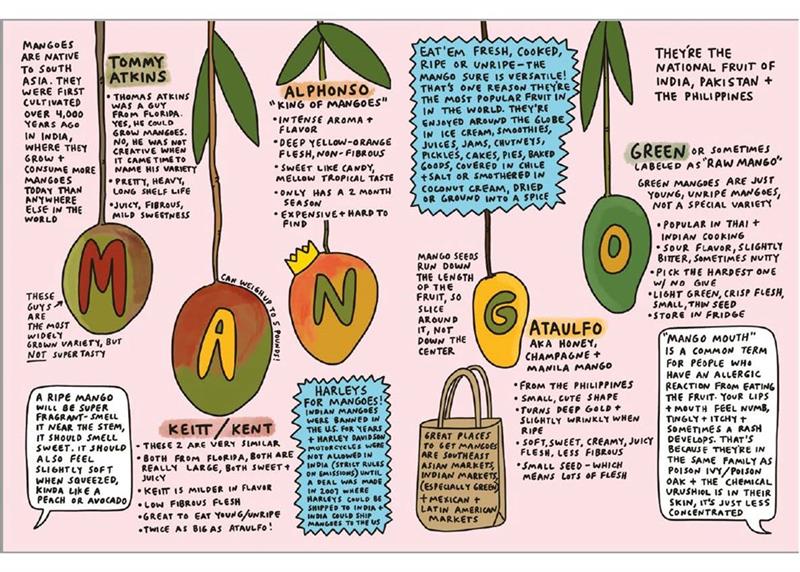 MANGOES
ARE NATIVE
TO SOUTH
ASIA. THEY
WERE FIRST
CULTIVATED
OVER 4,000
YEARS AGO
IN INDIA,
WHERE THEY
GROW +
CONSUME MORE
MANGOES
TODAY THAN
ANYWHERE
ELSE IN THE
WORLD
TOMMY
ATKINS
• THOMAS ATKINS
WAS A GUY
FROM FLORIDA.
YES, HE COULD
GROW MANGOES.
NO, HE WAS NOT
CREATIVE WHEN
IT CAME TIME TO
NAME HIS VARIETY
• PRETTY, HEAVY,
LONG SHELF LIFE
• JUICY, FIBROUS,
MILD SWEETNESS
M
THESE
GUYS
ARE
THE MOST
WIDELY
GROWN VARIETY, BUT
NOT SUPER TASTY
A RIPE MANGO
WILL BE SUPER
FRAGRANT-SMELL
IT NEAR THE STEM,
IT SHOULD SMELL
SWEET. IT SHOULD
ALSO FEEL
SLIGHTLY SOFT
WHEN SQUEEZED,
KINDA LIKE A
PEACH OR AVOCADO
A
CAN WEIGH UP TO 5 POUNDS!
KEITT/KENT
• THESE 2 ARE VERY SIMILAR
• BOTH FROM FLORIDA, BOTH ARE
REALLY LARGE, BOTH SWEET +
JUICY
• KEITT IS MILDER IN FLAVOR
• LOW FIBROUS FLESH
• GREAT TO EAT YOUNG/UNRIPE
• TWICE AS BIG AS ATAULFO!
ALPHONSO
"KING OF MANGOES"
• INTENSE AROMA +
FLAVOR
• DEEP YELLOW-ORANGE
FLESH, NON-FIBROUS
• SWEET LIKE CANDY,
MELLOW TROPICAL TASTE
• ONLY HAS A 2 MONTH
SEASON
• EXPENSIVE + HARD TO
FIND
N
HARLEYS
FOR MANGOES!
INDIAN MANGOES
WERE BANNED IN
THE U.S. FOR YEARS
+ HARLEY DAVIDSON
MOTORCYCLES WERE
NOT ALLOWED IN
INDIA (STRICT RULES
ON EMISSIONS) UNTIL
A DEAL WAS MADE
IN 2007 WHERE
HARLEYS COULD BE
SHIPPED TO INDIA +
INDIA COULD SHIP
MANGOES TO THE US
EAT 'EM FRESH, COOKED,
RIPE OR UNRIPE-THE
MANGO SURE IS VERSATILE!
THAT'S ONE REASON THEY'RE
THE MOST POPULAR FRUIT IN
IN THE WORLD. THEY'RE
ENJOYED AROUND THE GLOBE
IN ICE CREAM, SMOOTHIES,
JUICES, JAMS, CHUTNEYS,
PICKLES, CAKES, PIES, BAKED
GOODS, COVERED IN CHILE
+ SALT OR SMOTHERED IN
COCONUT CREAM, DRIED
OR GROUND INTO A SPICE
MANGO SEEDS
RUN DOWN
THE LENGTH
OF THE
FRUIT, SO
SLICE
AROUND
IT, NOT
DOWN THE
CENTER
G
ATAULFO
AKA HONEY,
CHAMPAGNE +
MANILA MANGO
• FROM THE PHILIPPINES
• SMALL, CUTE SHAPE
• TURNS DEEP GOLD +
SLIGHTLY WRINKLY WHEN
RIPE
• SOFT, SWEET, CREAMY, JUICY
FLESH, LESS FIBROUS
• SMALL SEED - WHICH
MEANS LOTS OF FLESH
GREAT PLACES
TO GET MANGOES
ARE SOUTHEAST
ASIAN MARKETS,
INDIAN MARKETS,
(ESPECIALLY GREEN)
+ MEXICAN +
LATIN AMERICAN
MARKETS
THEY'RE THE
NATIONAL FRUIT OF
INDIA, PAKISTAN +
THE PHILIPPINES
GREEN OR SOMETIMES
LABELED AS "RAW MANGO"
GREEN MANGOES ARE JUST
YOUNG, UNRIPE MANGOES,
NOT A SPECIAL VARIETY
• POPULAR IN THAI +
INDIAN COOKING
• SOUR FLAVOR, SLIGHTLY
BITTER, SOMETIMES NUTTY
• PICK THE HARDEST ONE
W/ NO GIVE
• LIGHT GREEN, CRISP FLESH,
SMALL, THIN SEED
• STORE IN FRIDGE
O
"MANGO MOUTH"
IS A COMMON TERM
FOR PEOPLE WHO
HAVE AN ALLERGIC
REACTION FROM EATING
THE FRUIT. YOUR LIPS
+ MOUTH FEEL NUMB,
TINGLY + ITCHY +
SOMETIMES A RASH
DEVELOPS. THAT'S
BECAUSE THEY'RE IN
THE SAME FAMILY AS
POISON IVY/POISON
OAK + THE CHEMICAL
URUSHIOL IS IN THEIR
SKIN, IT'S JUST LESS
CONCENTRATED